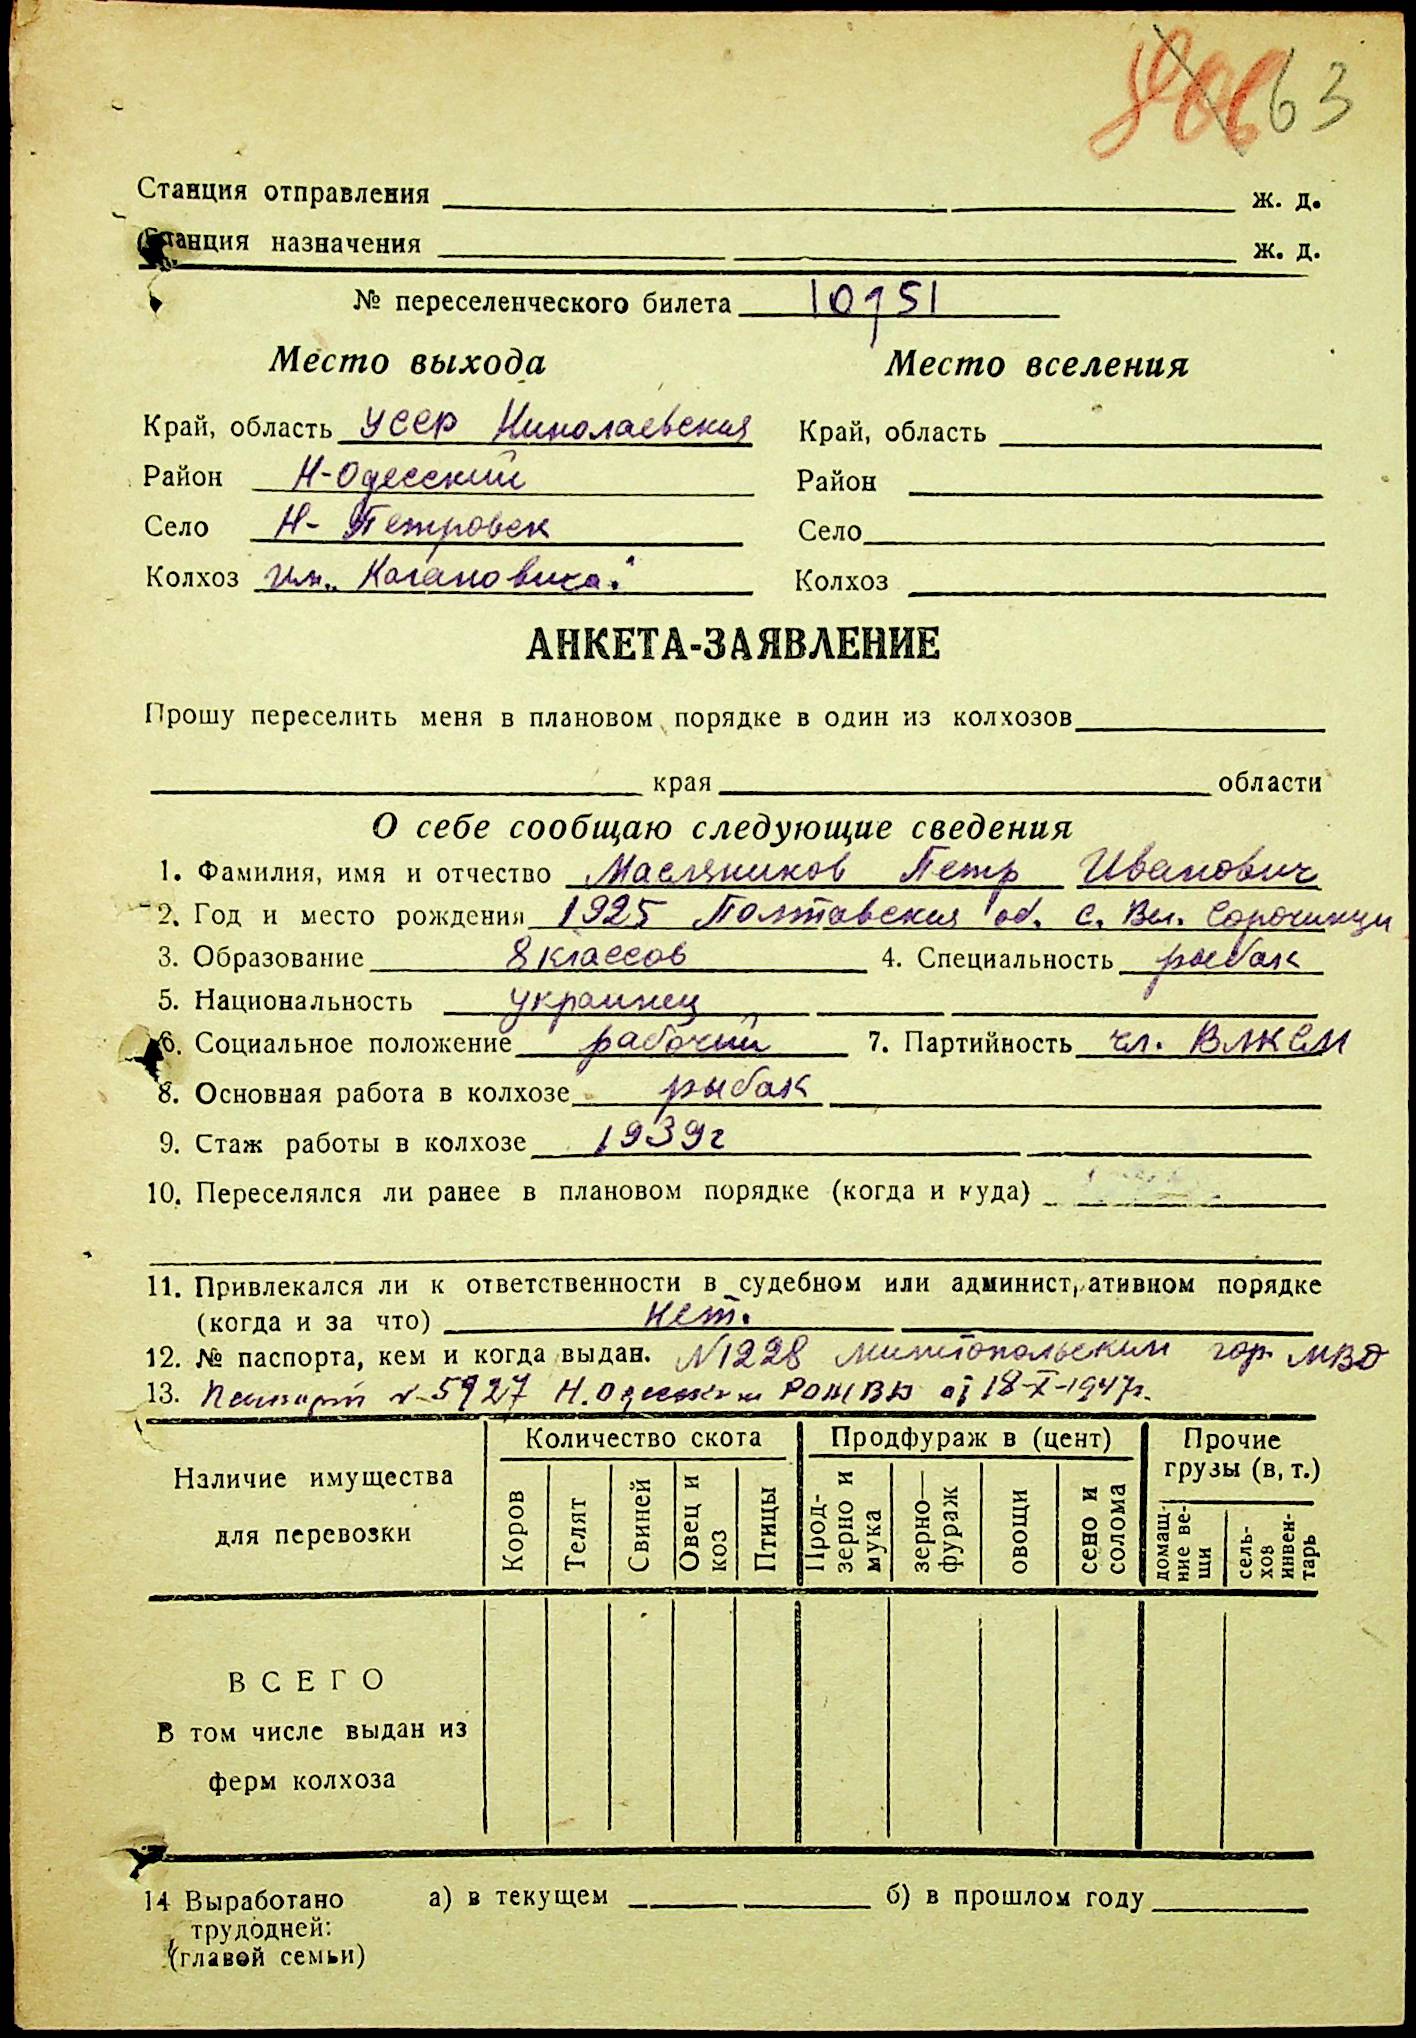 63
Станция отправления ж. д.
Станция назначения ж. д.
№ переселенческого билета 10751
Место выхода Место вселения
Край, область УССР Николаевская Край, область
Район Н-Одесский Район
Село Н- Петровск Село
Колхоз им. „Кагановича" Колхоз
АНКЕТА-ЗАЯВЛЕНИЕ
Прошу переселить меня в плановом порядке в один из колхозов
края области
О себе сообщаю следующие сведения
1. Фамилия, имя и отчество Масляников Петр Иванович
2. Год и место рождения 1925 Полтавская об. с. Вел. Сорочинцы
3. Образование 8 классов 4. Специальность рыбак
5. Национальность украинец
6. Социальное положение рабочий 7. Партийность чл. ВЛКСМ
8. Основная работа в колхозе рыбак
9. Стаж работы в колхозе 1939г
10. Переселялся ли ранее в плановом порядке (когда и куда)
11. Привлекался ли к ответственности в судебном или административном порядке
(когда и за что) нет.
12. № паспорта, кем и когда выдан. №1228 гор. МВД
13. №5927 Н. Одесским РОМВД от 18-X-1947г.
Наличие имущества для перевозки
Количество скота
Продфураж в (цент)
Прочие грузы (в, т.)
Коров
Телят
Свиней
Овец и коз
Птицы
Прод-зерно и мука
зерно—фураж
овощи
сено и солома
домаш-ние ве-щи
сель-хов инвен-тарь
ВСЕГО
В том числе выдан из
ферм колхоза
14 Выработано а) в текущем б) в прошлом году
трудодней:
(главой семьи)